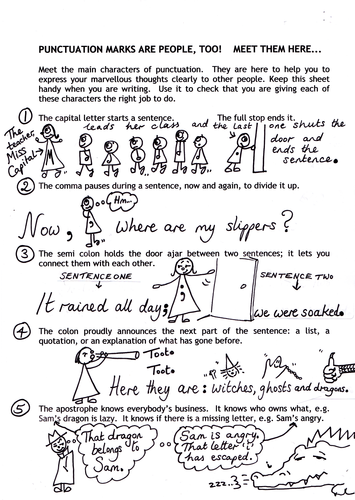 PUNCTUATION MARKS ARE PEOPLE, TOO! MEET THEM HERE...
Meet the main characters of punctuation. They are here to help you to
express your marvellous thoughts clearly to other people. Keep this sheet
handy when you are writing. Use it to check that you are giving each of
these characters the right job to do.
1 The capital letter starts a sentence. The full stop ends it.
The teacher, Miss Capital, leads her class and the last one shuts the
door and
ends the
sentence.
2 The comma pauses during a sentence, now and again, to divide it up.
Hm...
Now, where are my slippers?
3 The semi colon holds the door ajar between two sentences; it lets you
connect them with each other.
SENTENCE ONE SENTENCE TWO
It rained all day; we were soaked.
4 The colon proudly announces the next part of the sentence: a list, a
quotation, or an explanation of what has gone before.
Toot.
Toot.
Here they are: witches, ghosts and dragons.
5 The apostrophe knows everybody's business. It knows who owns what, e.g.
Sam's dragon is lazy. It knows if there is a missing letter, e.g. Sam's angry.
That dragon
belongs to
Sam.
Sam is angry.
That letter i
has escaped.
zzz.